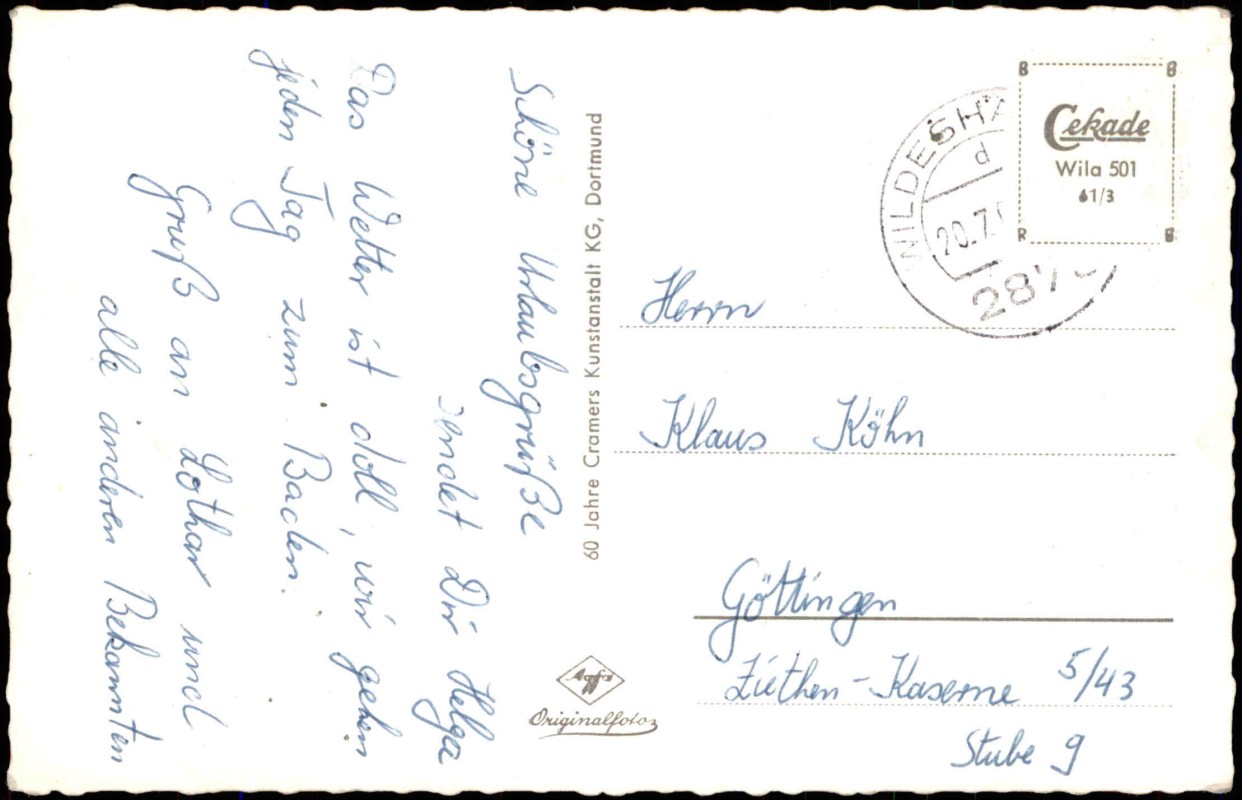 Schöne Urlaubsgrüße
sendet Dir Helga
Das Wetter ist doll, wir gehen
jeden Tag zum Baden.
Gruß an Lothar und
alle anderen Bekannten
60 Jahre Cramers Kunstanstalt KG, Dortmund
Agfa
Originalfoto
WILDESHA
d
20.7.
287
Cekade
Wila 501
61/3
Herrn
Klaus Köhn
Göttingen
Ziethen-Kaserne 5/43
Stube 9